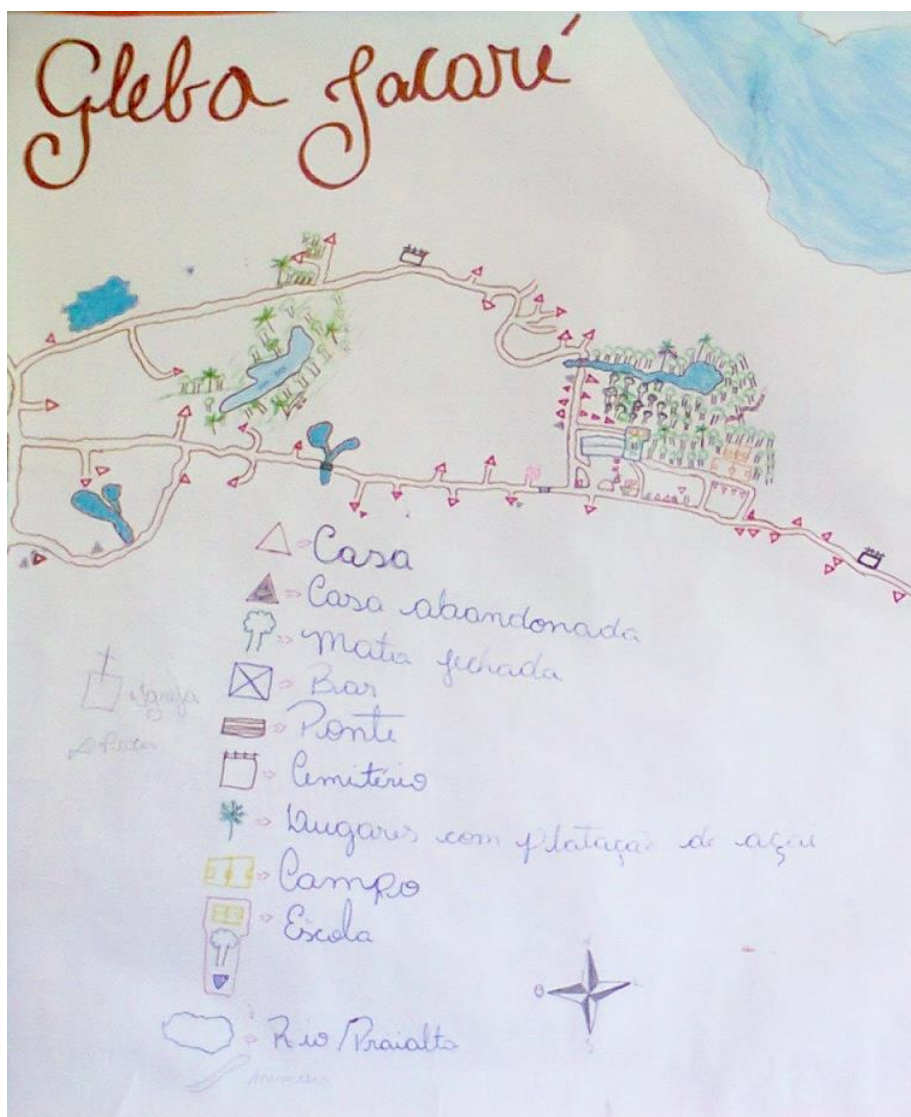 Gleba Jacaré
Casa
Casa abandonada
Mata fechada
Igreja
Bar
Ponte
Cemitério
Lugares com platação de açaí
Campo
Escola
O
S
Rio/Praialta